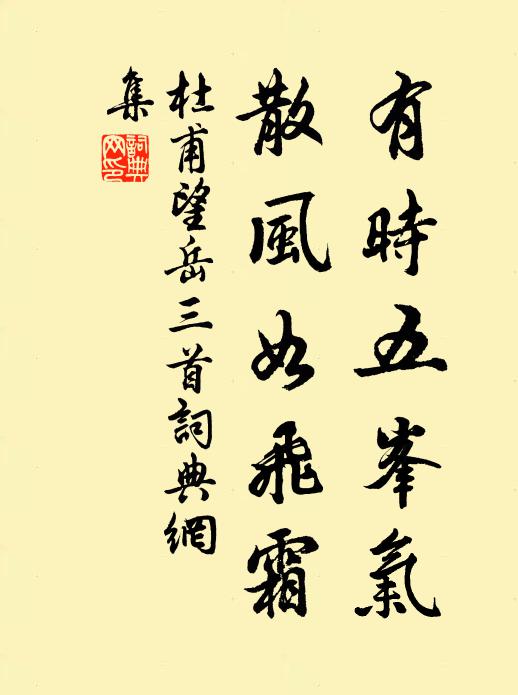 有時五峯氣
散風如飛霜
杜甫望岳三首詞典網
集
詞典
网印